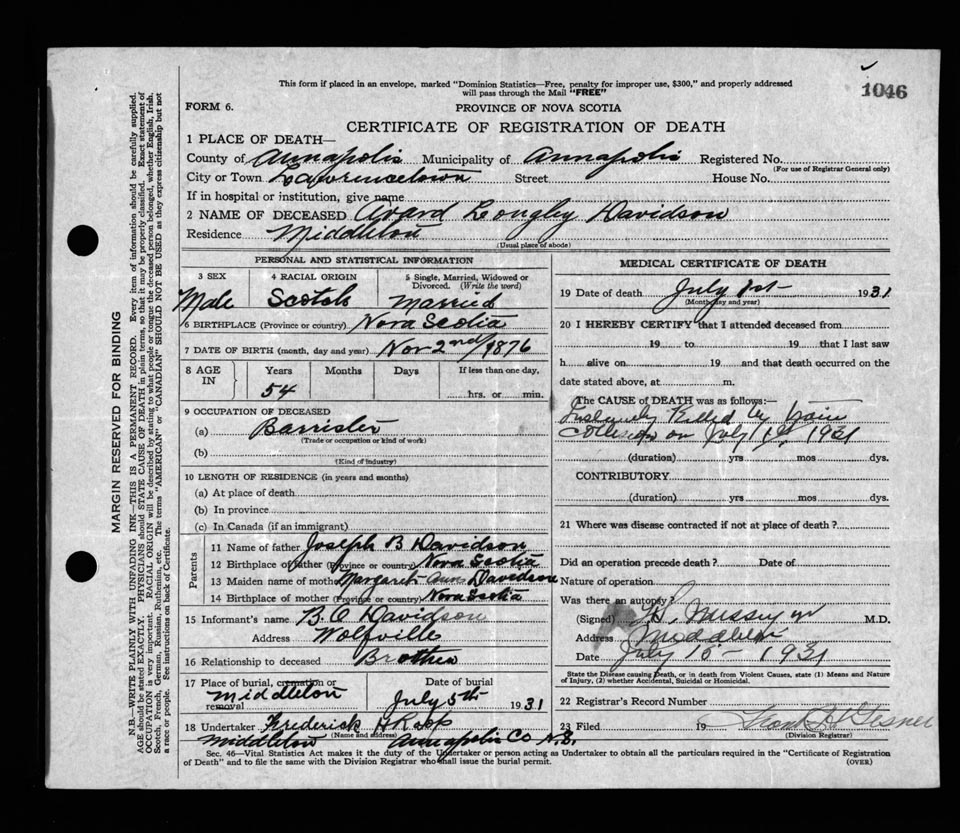 This form if placed in an envelope, marked "Dominion Statistics—Free, penalty for improper use, $300," and properly addressed
will pass through the Mail "FREE"
1046
FORM 6.
PROVINCE OF NOVA SCOTIA
CERTIFICATE OF REGISTRATION OF DEATH
1 PLACE OF DEATH—
County of Annapolis Municipality of Annapolis Registered No.
(For use of Registrar General only)
City or Town Lawrencetown Street House No.
If in hospital or institution, give name
2 NAME OF DECEASED Avard Longley Davidson
Residence Middleton
(Usual place of abode)
PERSONAL AND STATISTICAL INFORMATION
3 SEX 4 RACIAL ORIGIN 5 Single, Married, Widowed or Divorced. (Write the word)
Male Scotch Married
6 BIRTHPLACE (Province or country) Nova Scotia
7 DATE OF BIRTH (month, day and year) Nov 2nd/1876
8 AGE IN Years Months Days If less than one day,
54 hrs. or min.
9 OCCUPATION OF DECEASED
(a) Barrister
(Trade or occupation or kind of work)
(b)
(Kind of industry)
10 LENGTH OF RESIDENCE (in years and months)
(a) At place of death
(b) In province
(c) In Canada (if an immigrant)
Parents
11 Name of father Joseph B Davidson
12 Birthplace of father (Province or country) Nova Scotia
13 Maiden name of mother Margaret Ann Davidson
14 Birthplace of mother (Province or country) Nova Scotia
15 Informant's name B. O Davidson
Address Wolfville
16 Relationship to deceased Brother
17 Place of burial, cremation or removal Date of burial
Middleton July 5th 1931
18 Undertaker Frederick H Rapp
(Name and address)
Middleton Annapolis Co N.S.
MEDICAL CERTIFICATE OF DEATH
19 Date of death July 1st 1931
(Month, day and year)
20 I HEREBY CERTIFY that I attended deceased from
19 to 19 that I last saw
h alive on 19 and that death occurred on the
date stated above, at m.
The CAUSE of DEATH was as follows:—
Killed by train
Collision on July 1st 1931
(duration) yrs mos dys.
CONTRIBUTORY
(duration) yrs mos dys.
21 Where was disease contracted if not at place of death?
Did an operation precede death? Date of
Nature of operation
Was there an autopsy?
(Signed) M.D.
Address Middleton
Date July 15 - 1931
State the Disease causing Death, or in death from Violent Causes, state (1) Means and Nature of Injury, (2) whether Accidental, Suicidal or Homicidal.
22 Registrar's Record Number
23 Filed 19 Gesner
(Division Registrar)
Sec. 46—Vital Statistics Act makes it the duty of the Undertaker or person acting as Undertaker to obtain all the particulars required in the "Certificate of Registration
of Death" and to file the same with the Division Registrar who shall issue the burial permit. (OVER)
MARGIN RESERVED FOR BINDING
N.B.—WRITE PLAINLY WITH UNFADING INK—THIS IS A PERMANENT RECORD. Every item of information should be carefully supplied.
AGE should be stated EXACTLY. PHYSICIANS should STATE CAUSE OF DEATH in plain terms, so that it may be properly classified. Exact statement of
OCCUPATION is very important. RACIAL ORIGIN will be described by stating to what people or tongue the deceased person belonged, whether English, Irish,
Scotch, French, German, Russian, Ruthenian, etc. The terms "AMERICAN" or "CANADIAN" SHOULD NOT BE USED as they express citizenship but not
a race or people. See instructions on back of Certificate.